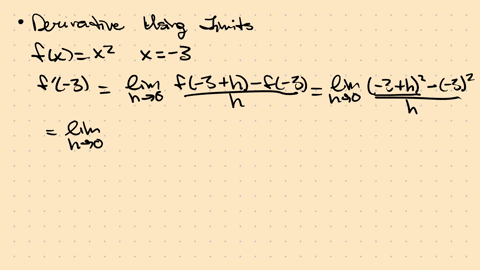 • Derivative Using Limits
f(x) = x² x = -3
f'(-3) = lim h→0 f(-3+h) - f(-3) / h = lim h→0 (-3+h)² - (-3)² / h
= lim h→0